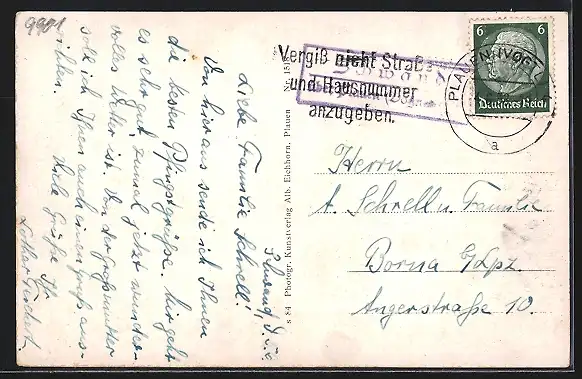 9901
Schwand, d.
Liebe Familie Schrell!
Von hier aus sende ich Ihnen
die besten Pfingstgrüße. Mir geht
es sehr gut, zumal jetzt wunder-
volles Wetter ist. Von der Großmutter
soll ich Ihnen auch einen Gruß aus-
richten.
Viele Grüße Ihr
Lothar
s 84 Photogr. Kunstverlag Alb. Eichhorn, Plauen Nr. 151
Vergiß nicht Straße
und Hausnummer
anzugeben.
PLAUEN (VOGTL
a
6 6
Deutsches Reich
Herrn
A. Schrell u. Familie
Borna b/Lpz.
Angerstraße 10.